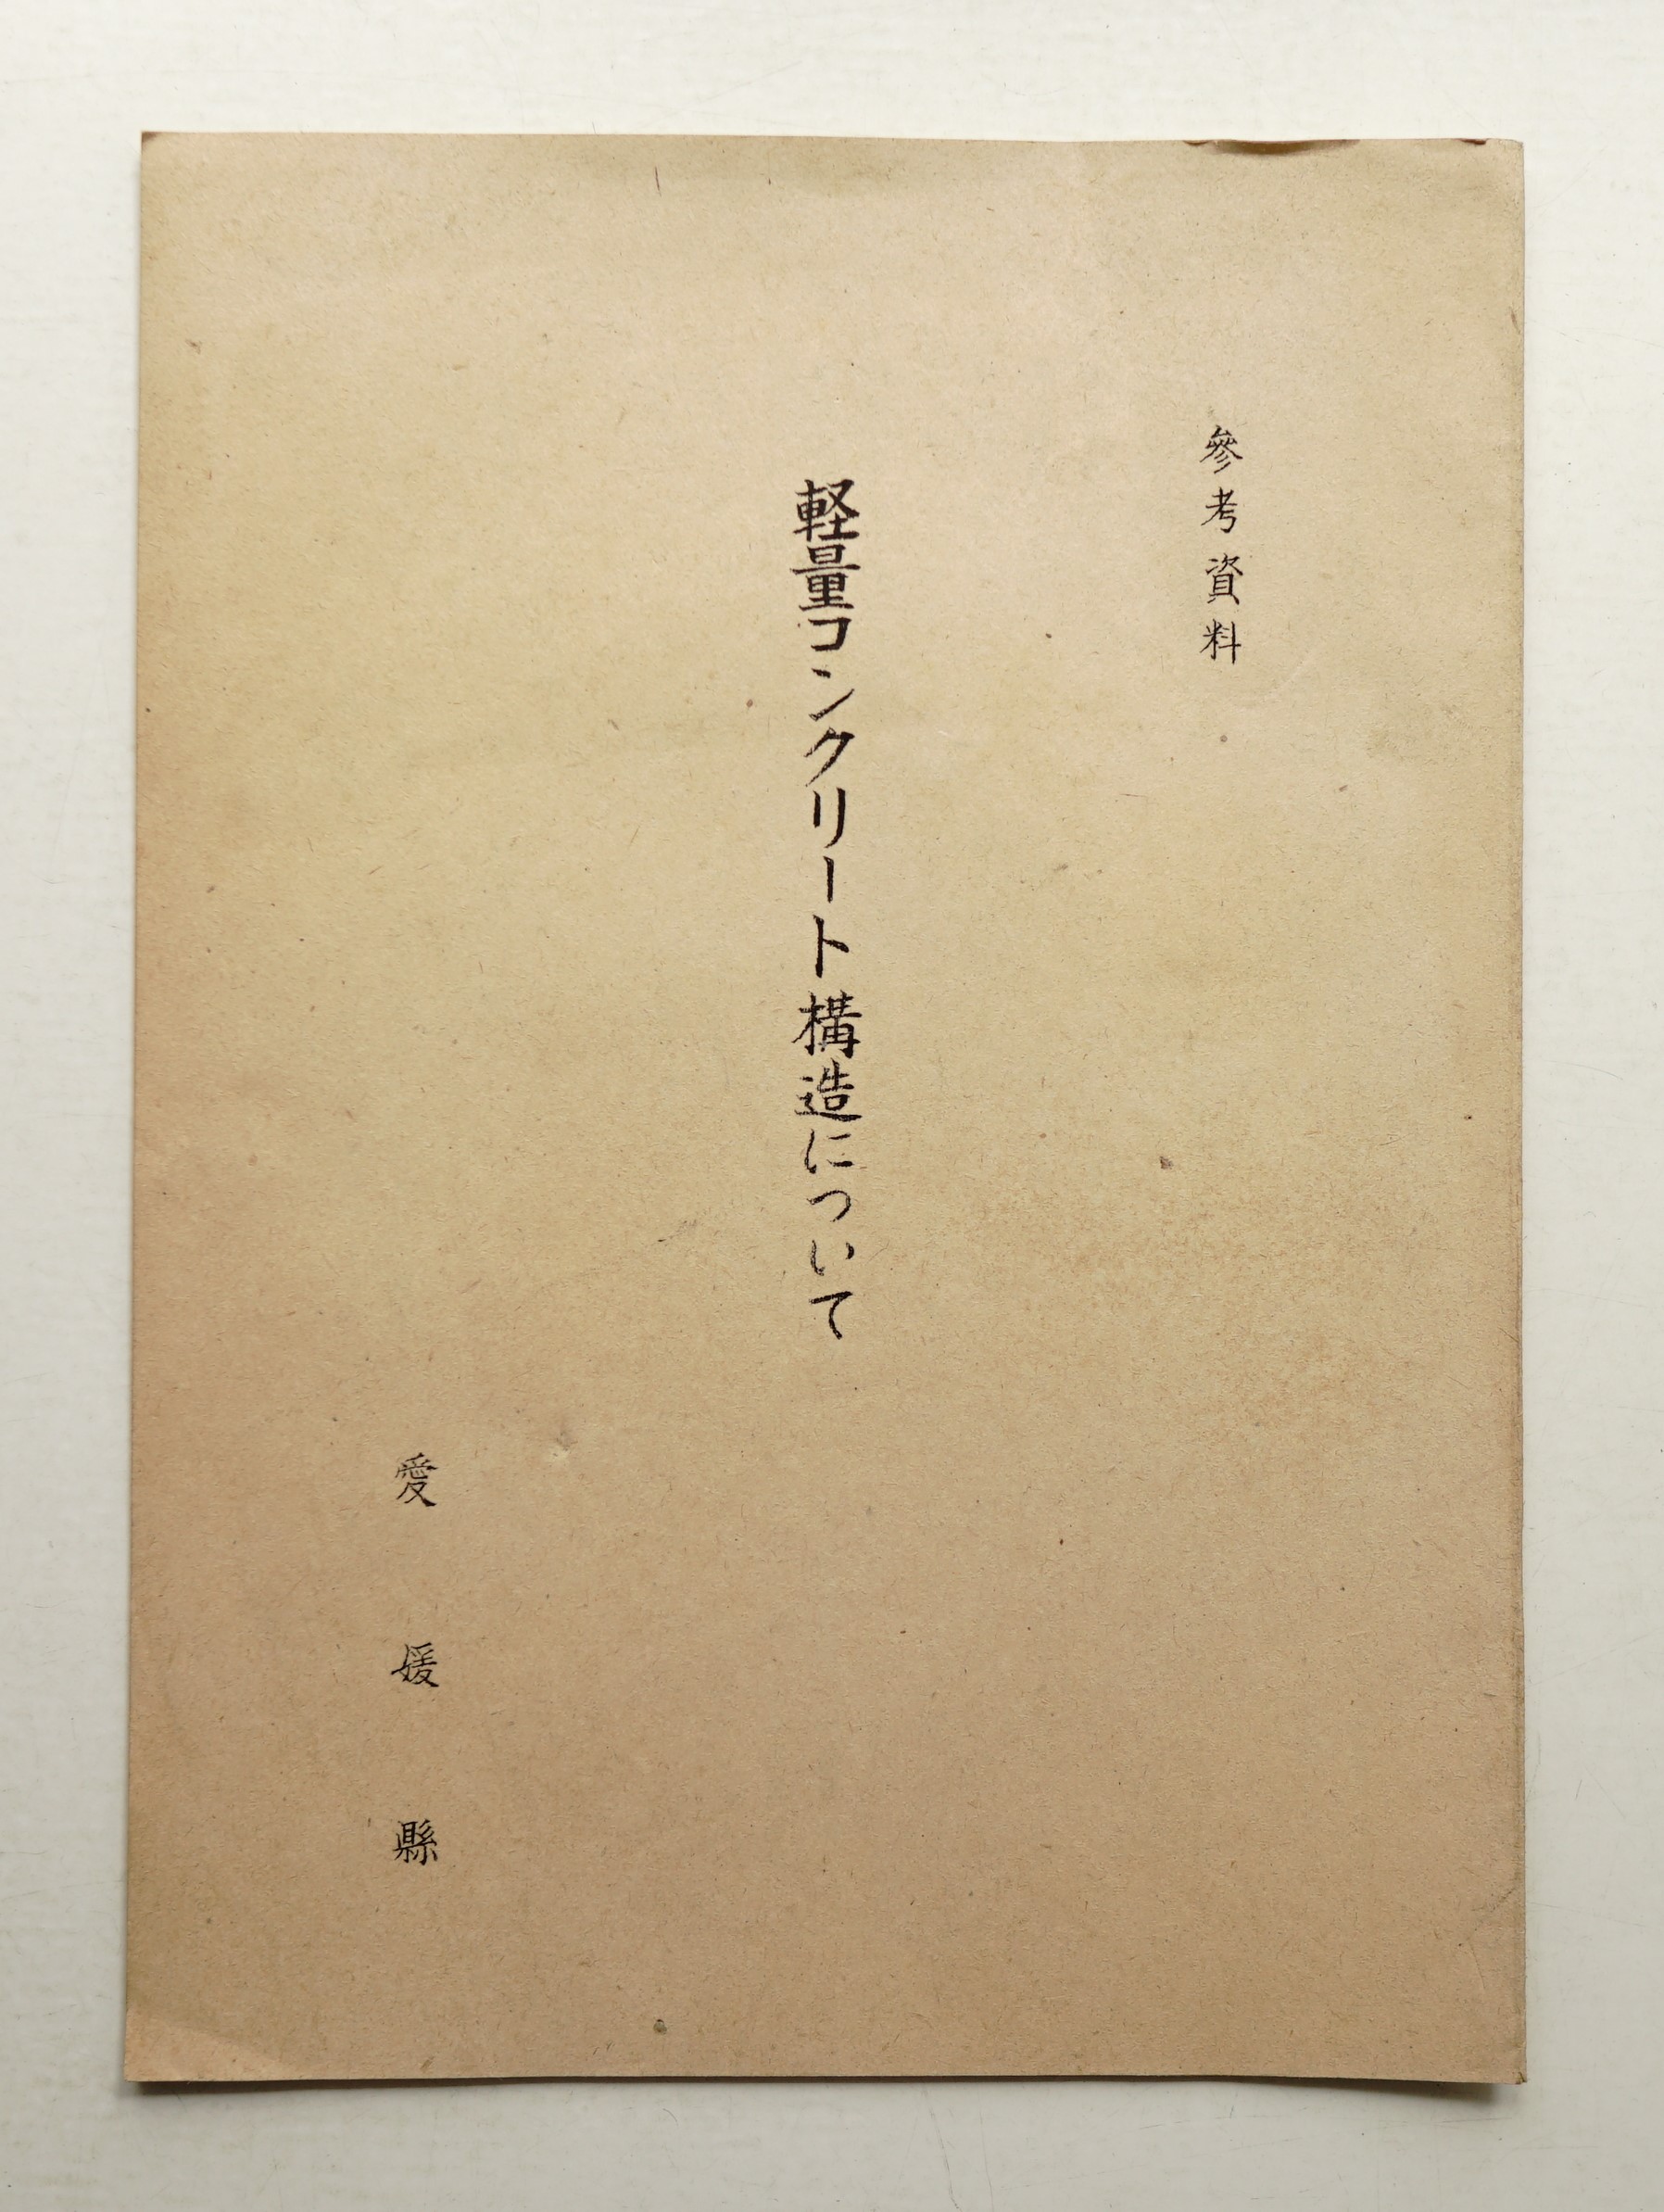 參考資料
軽量コンクリート構造について
愛媛縣